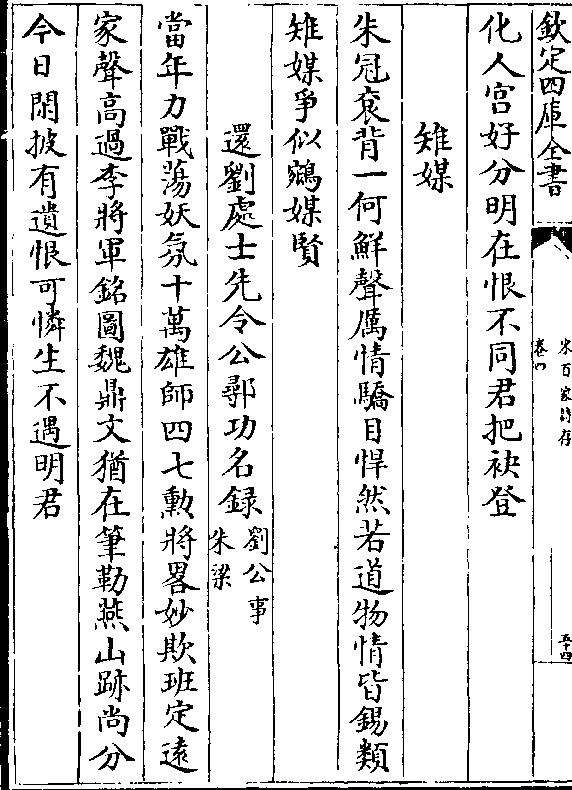 欽定四庫全書
宋百家詩存
卷四
五十四
化人宮好分明在恨不同君把袂登
雉媒
朱冠衮背一何鮮聲厲情驕目悍然若道物情皆錫類
雉媒爭似鷄媒賢
還劉處士先令公鄩功名録
劉公事
朱梁
當年力戰蕩妖氛十萬雄師四七勲將畧妙欺班定逺
家聲高過李將軍銘圖魏鼎文猶在筆勒燕山跡尚分
今日閑披有遺恨可憐生不遇明君